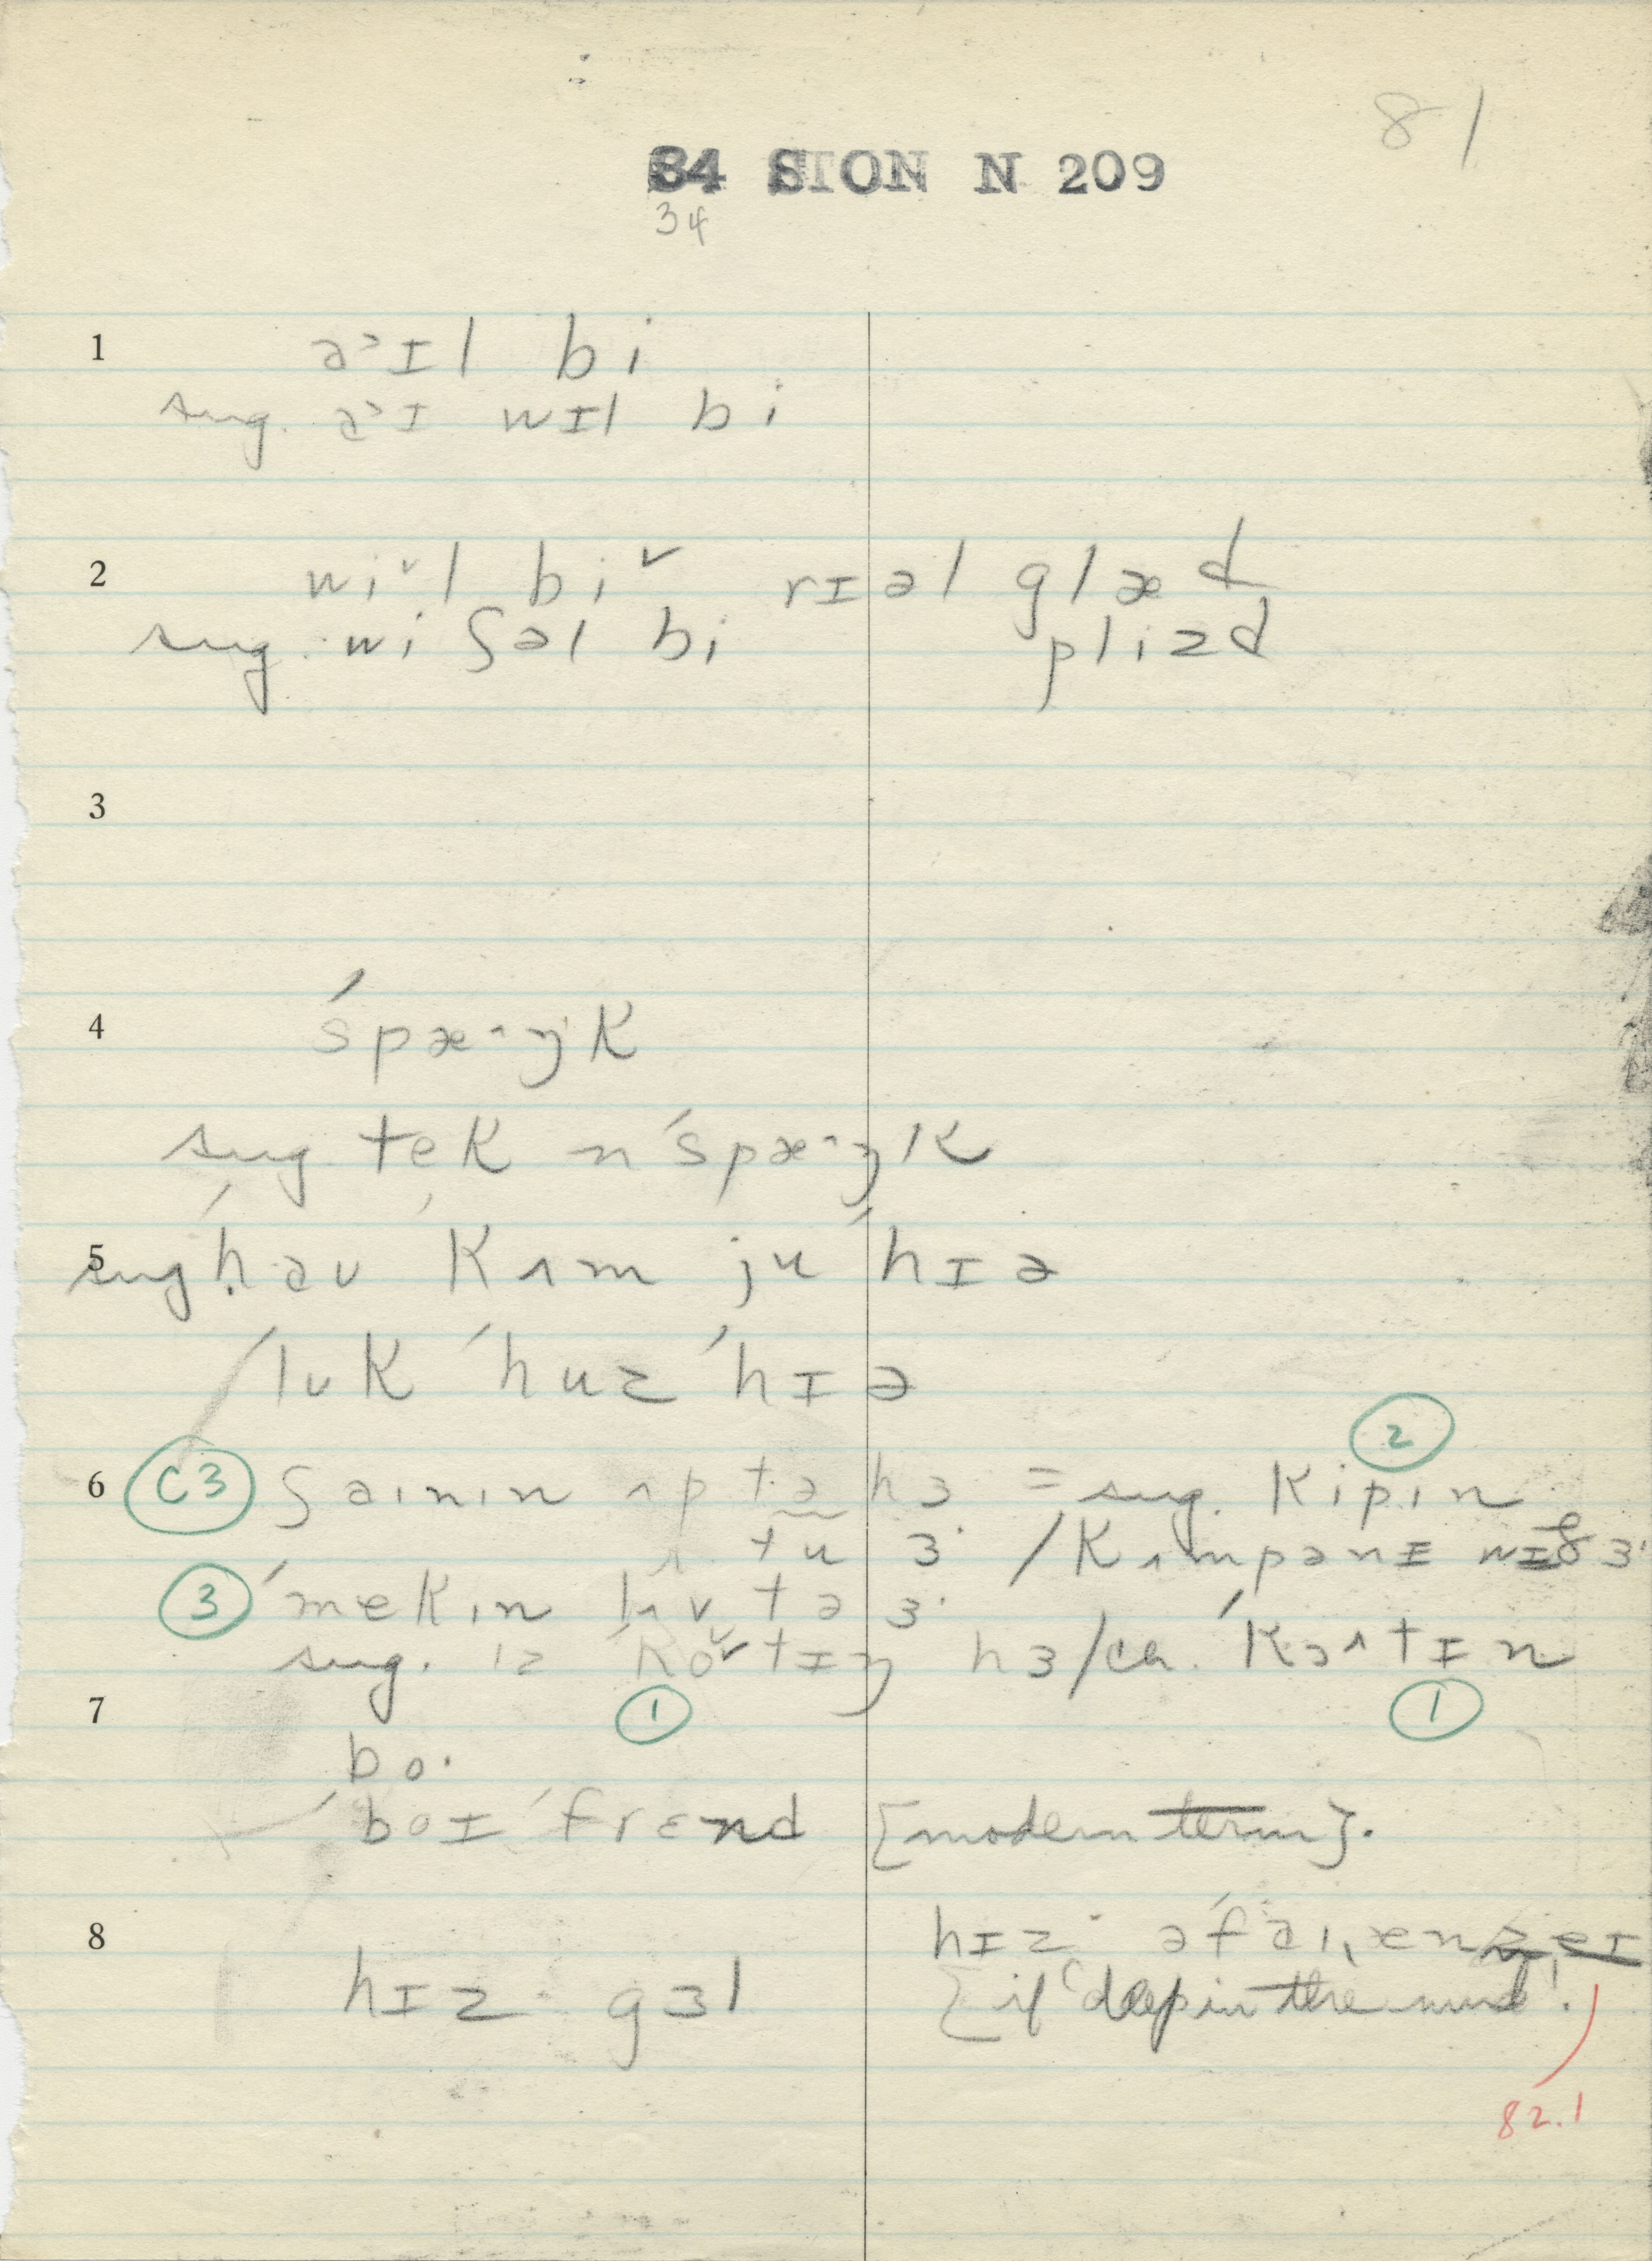 81
34 SION N 209
34
1 a˃ɪl bi
sug. a˃ɪ wɪl bi
2 wi˅l bi˅ rɪəl glæd
sug. wi ʃəl bi plizd
3
4 ˈspæ·ŋk
sug tek n ˈspæ·ŋk
5 sug ˈhəʊ ˈkʌm ju ˈhɪə
ˈlʊk ˈhuz ˈhɪə
6 C3 ʃaɪnɪn ʌp tə hɜ = sug. kipɪn 2
tu ɜ· / kʌmpənɪ wɪð ɜ·
3 ˈmekɪn lʌv tə ɜ·
sug. ɪz ˈko˅tɪŋ hɜ/ch. ˈkɔʌtɪn
7 1 1
bo·
ˈboɪ ˈfrɛnd {modern term}.
8 hɪz· gɜl hɪz· əˈfaɪˌæn
{if 'deep in the mind'.
82.1